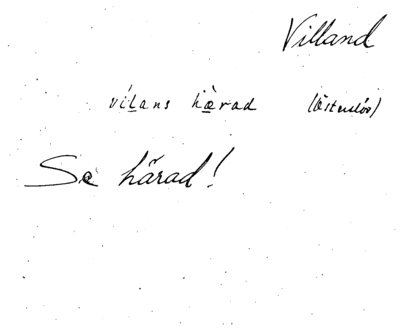 Villand
vílans hærad (Österlöv)
Se härad!